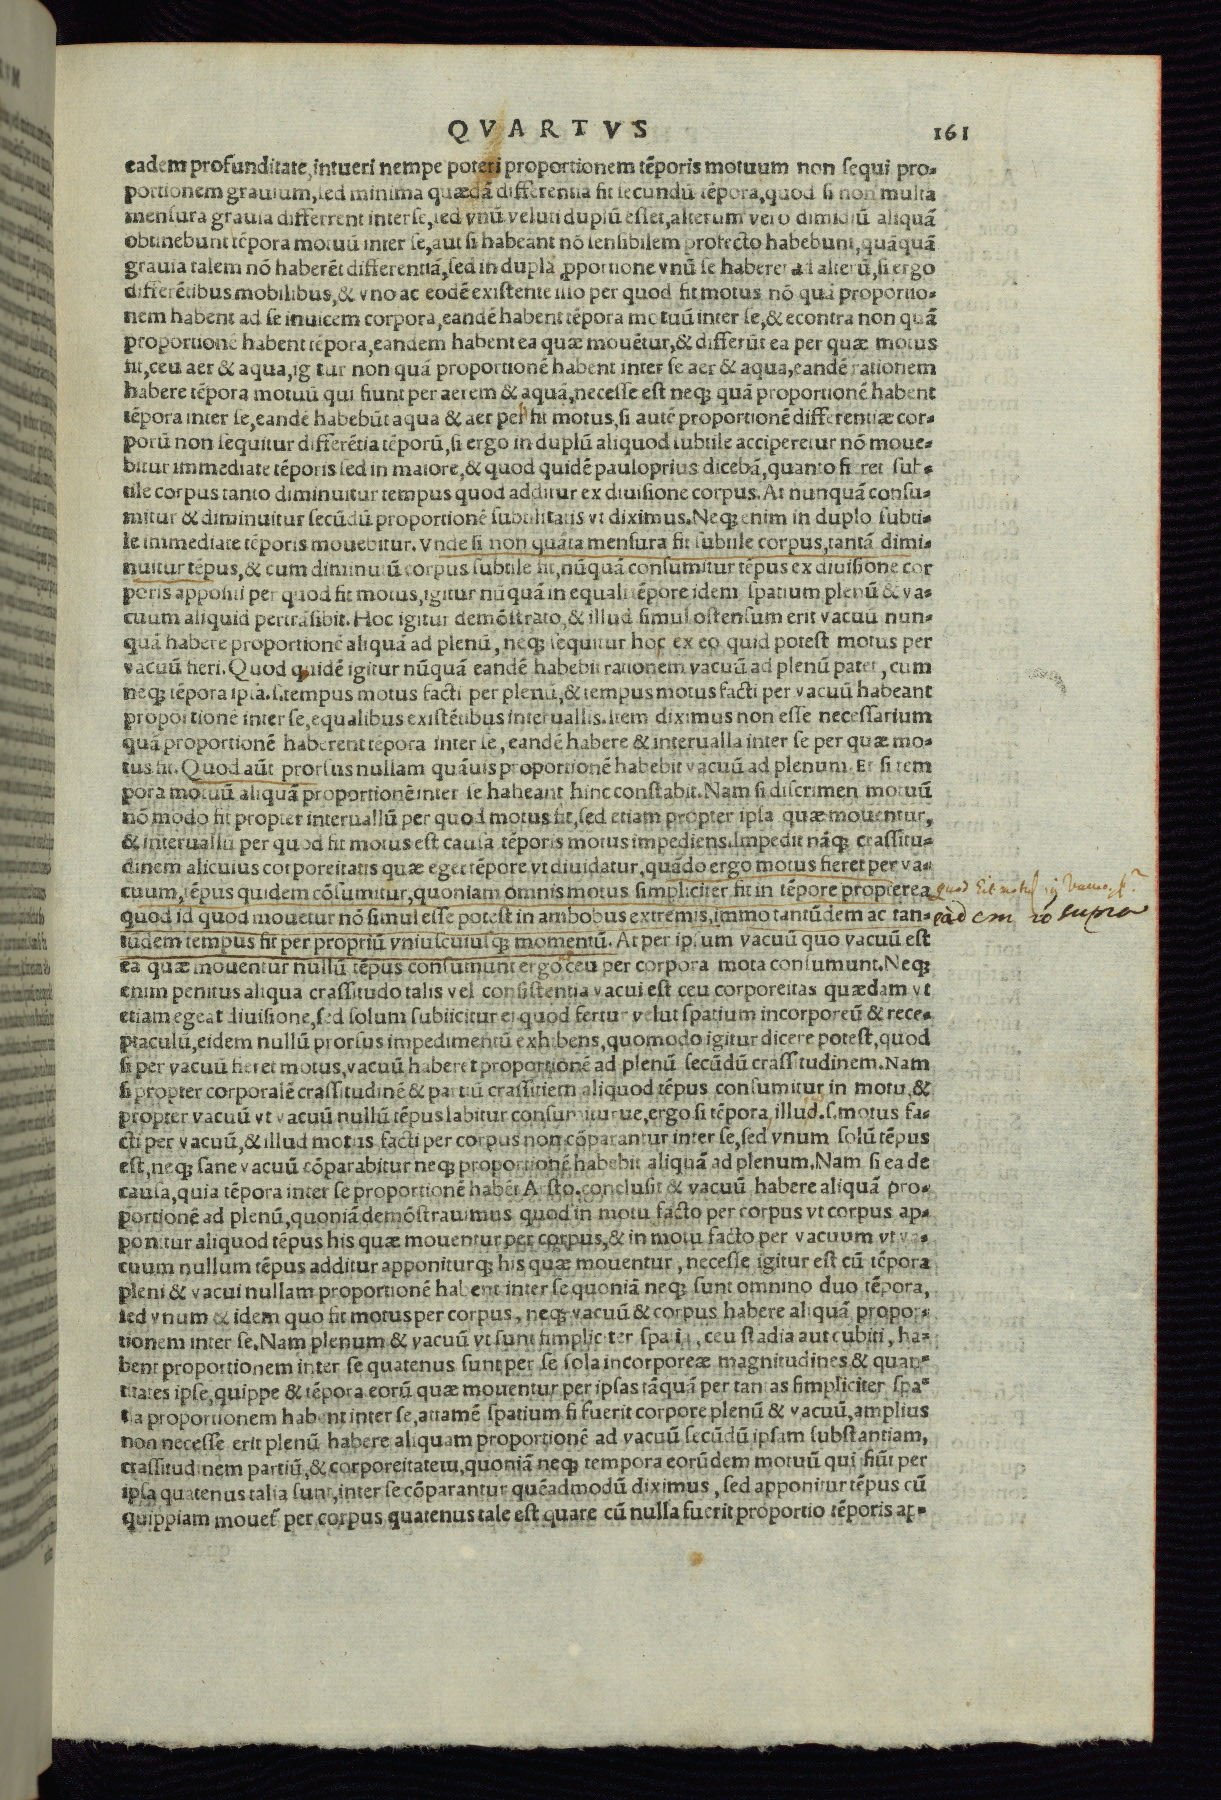 QVARTVS 161
eadem profunditate, intueri nempe poteri proportionem tẽporis motuum non sequi pro-
portionem grauium, sed minima quædã differentia fit secundũ tẽpora, quod si non multa
mensura grauia differrent inter se, sed vnũ veluti duplũ esset, alterum vero dimidiũ aliquã
obtinebunt tẽpora motuũ inter se, aut si habeant nõ sensibilem profecto habebunt, quãquã
grauia talem nõ haberẽt differentiã, sed in dupla ꝓportione vnũ se haberet ad alterũ, si ergo
differẽtibus mobilibus, & vno ac eodẽ existente illo per quod fit motus nõ quã proportio-
nem habent ad se inuicem corpora, eandẽ habent tẽpora motuũ inter se, & econtra non quã
proportionẽ habent tẽpora, eandem habent ea quæ mouẽtur, & differũt ea per quæ motus
fit, ceu aer & aqua, igitur non quã proportionẽ habent inter se aer & aqua, eandẽ rationem
habere tẽpora motuũ qui fiunt per aerem & aquã, necesse est neqꝫ quã proportionẽ habent
tẽpora inter se, eandẽ habebũt aqua & aer per fit motus, si autẽ proportionẽ differentiæ cor-
porũ non sequitur differẽtia tẽporũ, si ergo in duplũ aliquod subtile acciperetur nõ moue-
bitur immediate tẽporis sed in maiore, & quod quidẽ pauloprius dicebã, quanto fieret sub-
tile corpus tanto diminuitur tempus quod additur ex diuisione corpus. At nunquã consu-
mitur & diminuitur secũdũ proportionẽ subtilitatis vt diximus. Neqꝫ enim in duplo subti-
le immediate tẽporis mouebitur. Vnde si non quãta mensura fit subtile corpus, tantã dimi-
nuitur tẽpus, & cum diminutũ corpus subtile fit, nũquã consumitur tẽpus ex diuisione cor
poris appositi per quod fit motus, igitur nũquã in equali tẽpore idem spatium plenũ & va-
cuum aliquid pertrãsibit. Hoc igitur demõstrato, & illud simul ostensum erit vacuũ nun-
quã habere proportionẽ aliquã ad plenũ, neqꝫ sequitur hoc ex eo quid potest motus per
vacuũ fieri. Quod quidẽ igitur nũquã eandẽ habebit rationem vacuũ ad plenũ patet, cum
neqꝫ tẽpora ipsa. s. tempus motus facti per plenũ, & tempus motus facti per vacuũ habeant
proportionẽ inter se, equalibus existẽtibus interuallis. Item diximus non esse necessarium
quã proportionẽ haberent tẽpora inter se, eandẽ habere & interualla inter se per quæ mo-
tus fit. Quod aũt prorsus nullam quãuis proportionẽ habebit vacuũ ad plenum. Et si tem
pora motuũ aliquã proportionẽ inter se habeant hinc constabit. Nam si discrimen motuũ
nõ modo fit propter interuallũ per quod motus fit, sed etiam propter ipsa quæ mouentur,
& interuallũ per quod fit motus est causa tẽporis motus impediens. Impedit nãqꝫ crassitu-
dinem alicuius corporeitatis quæ eget tẽpore vt diuidatur, quãdo ergo motus fieret per va-
cuum, tẽpus quidem cõsumitur, quoniam omnis motus simpliciter fit in tẽpore propterea
quod id quod mouetur nõ simul esse potest in ambobus extremis, immo tantũdem ac tan-
tũdem tempus fit per propriũ vniuscuiusqꝫ momentũ. At per ipsum vacuũ quo vacuũ est
ea quæ mouentur nullũ tẽpus consumunt ergo ceu per corpora mota consumunt. Neqꝫ
enim penitus aliqua crassitudo talis vel consistentia vacui est ceu corporeitas quædam vt
etiam egeat diuisione, sed solum subiicitur ei quod fertur velut spatium incorporeũ & rece-
ptaculũ, eidem nullũ prorsus impedimentũ exhibens, quomodo igitur dicere potest, quod
si per vacuũ fieret motus, vacuũ haberet proportionẽ ad plenũ secũdũ crassitudinem. Nam
si propter corporalẽ crassitudinẽ & partiũ crassitiem aliquod tẽpus consumitur in motu, &
propter vacuũ vt vacuũ nullũ tẽpus labitur consumiturue, ergo si tẽpora illud. s. motus fa-
cti per vacuũ, & illud motus facti per corpus non cõparantur inter se, sed vnum solũ tẽpus
est, neqꝫ sane vacuũ cõparabitur neqꝫ proportionẽ habebit aliquã ad plenum. Nam si ea de
causa, quia tẽpora inter se proportionẽ habẽt Aristo. conclusit & vacuũ habere aliquã pro-
portionẽ ad plenũ, quoniã demõstrauimus quod in motu facto per corpus vt corpus ap-
ponitur aliquod tẽpus his quæ mouentur per corpus, & in motu facto per vacuum vt va-
cuum nullum tẽpus additur apponiturqꝫ his quæ mouentur, necesse igitur est cũ tẽpora
pleni & vacui nullam proportionẽ habent inter se quoniã neqꝫ sunt omnino duo tẽpora,
sed vnum & idem quo fit motus per corpus, neqꝫ vacuũ & corpus habere aliquã propor-
tionem inter se. Nam plenum & vacuũ vt sunt simpliciter spatia, ceu stadia aut cubiti, ha-
bent proportionem inter se quatenus sunt per se sola incorporeæ magnitudines & quan-
titates ipse, quippe & tẽpora eorũ quæ mouentur per ipsas tãquã per tantas simpliciter spa-
tia proportionem habent inter se, attamẽ spatium si fuerit corpore plenũ & vacuũ, amplius
non necesse erit plenũ habere aliquam proportionẽ ad vacuũ secũdũ ipsam substantiam,
crassitudinem partiũ, & corporeitatem, quoniã neqꝫ tempora eorũdem motuũ qui fiũt per
ipsa quatenus talia sunt, inter se cõparantur quẽadmodũ diximus, sed apponitur tẽpus cũ
quippiam mouet per corpus quatenus tale est quare cũ nulla fuerit proportio tẽporis ap-
supra